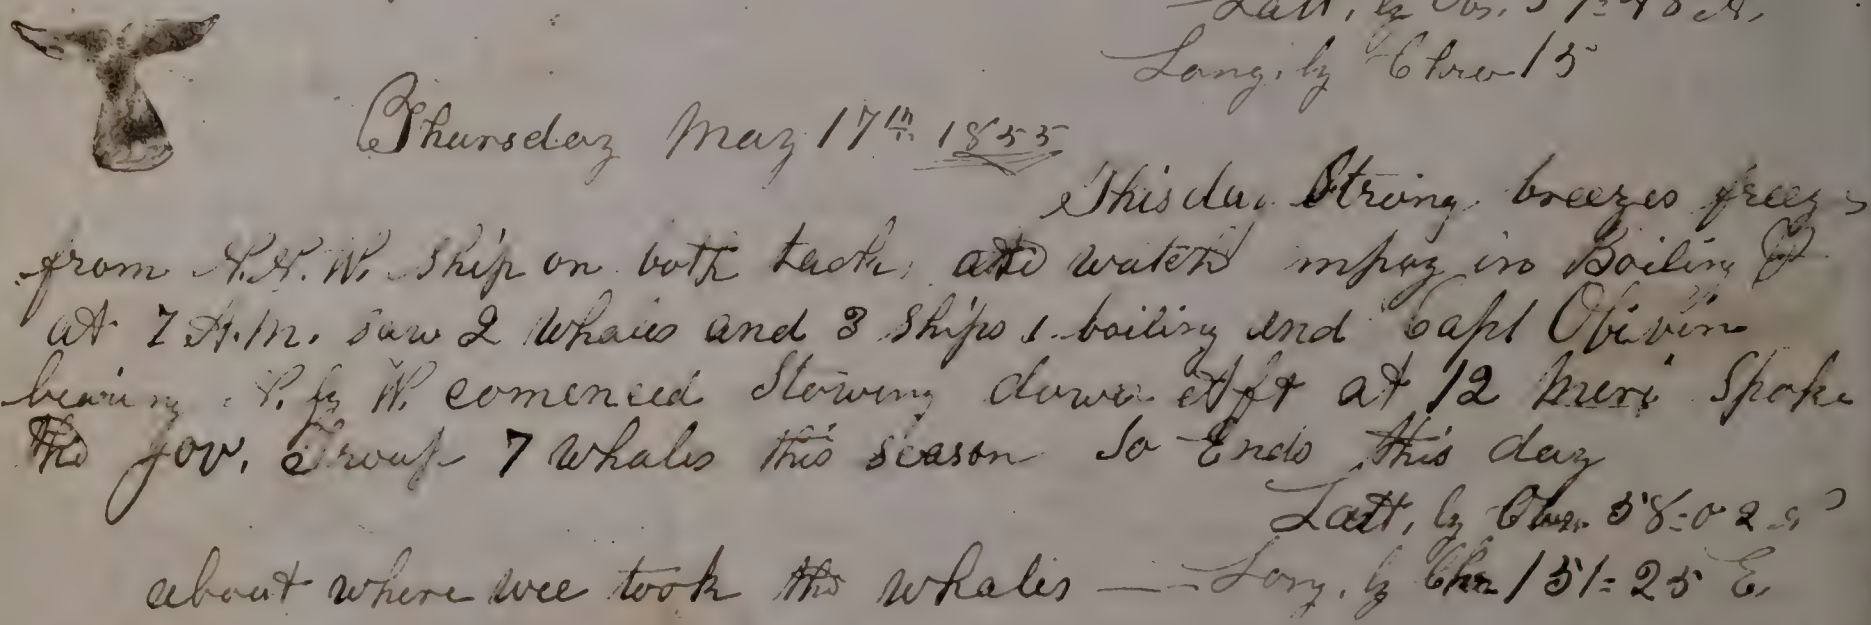 Latt, by Obs. 57=48 N,
Long, by Chro 15
Thursday May 17th 1855
This day Strong breezes
from N.N.W. Ship on both tacks, and watch in Boiling
at 7 A.M. saw 2 Whales and 3 Ships 1 boiling and Capt
bearing N. by W. comenced Stowing down Aft at 12 Meri Spoke
the Gov. Troup 7 Whales this season So Ends this day
Latt, by Obs. 58=02 N
about where wee took the whales — Long, by Chr 151=25 E,